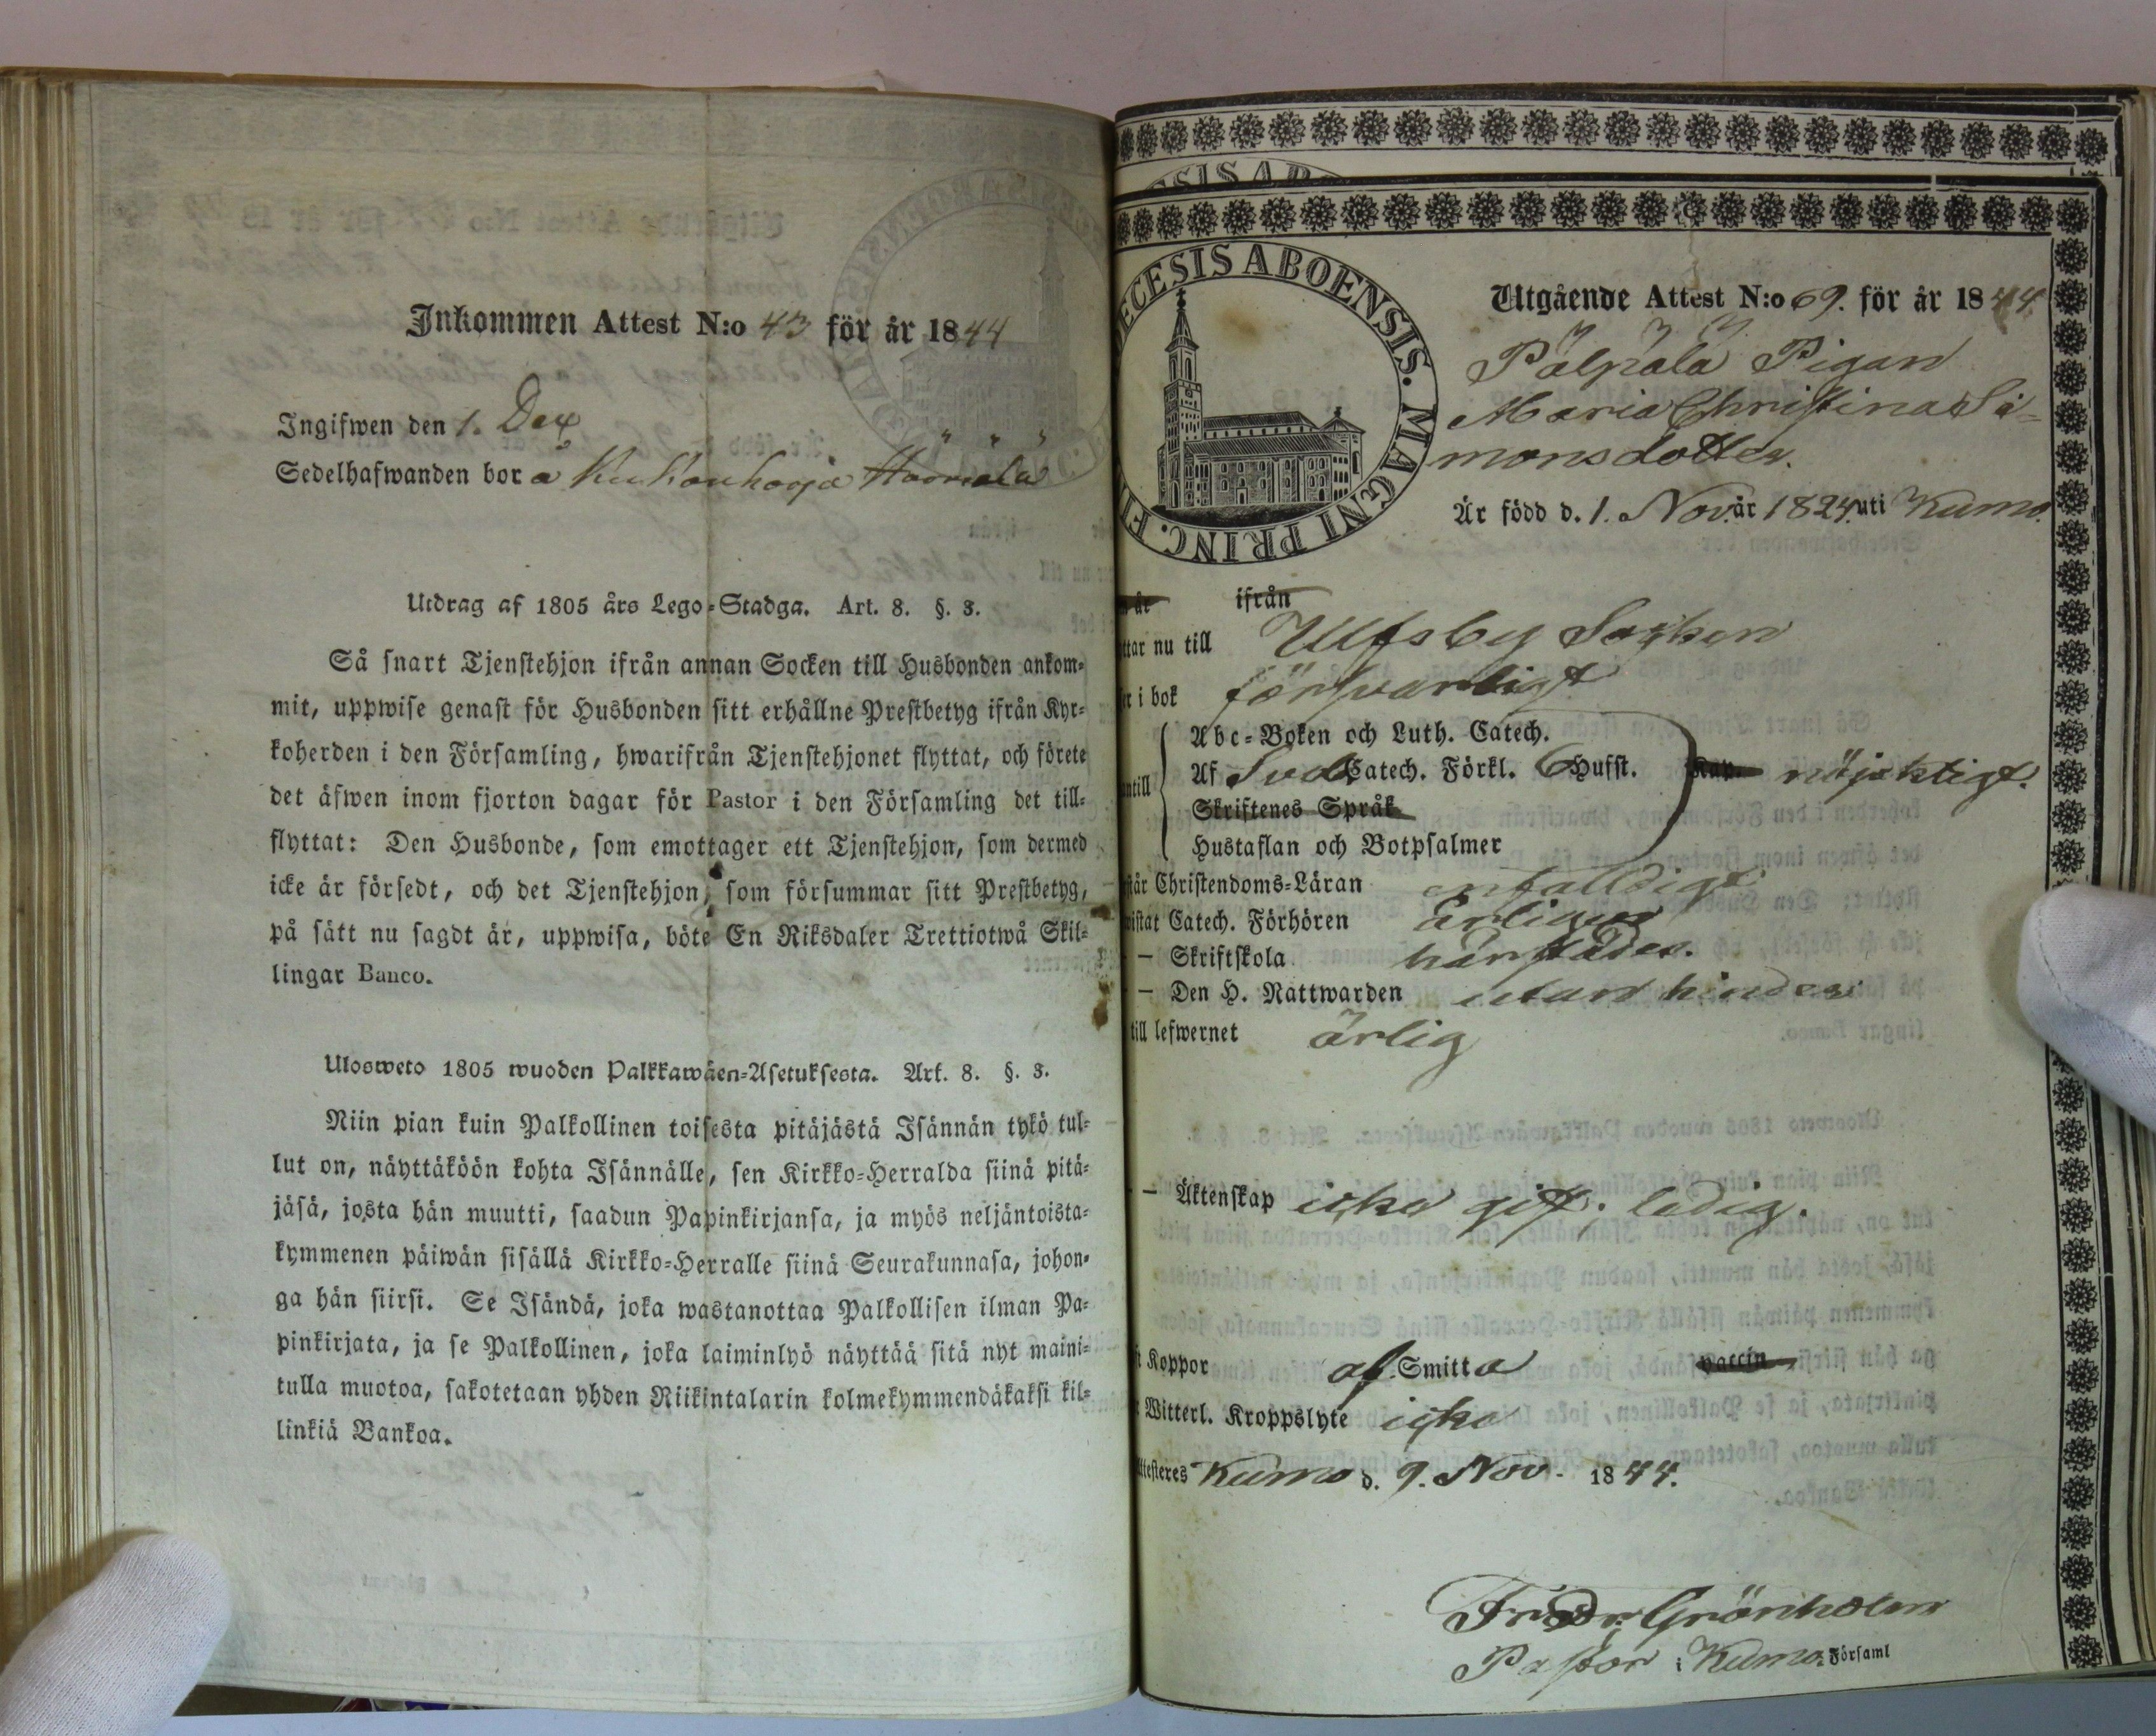 Inkommen Attest N:o 43 för år 1844
Ingifwen den 1. Dec
Sedelhafwanden bor å Kukonharja Häörälä
Utdrag af 1805 års Lego-Stadga. Art. 8. §. 3.
Så snart Tjenstehjon ifrån annan Socken till Husbonden ankom-
mit, uppwise genast för Husbonden sitt erhållne Prestbetyg ifrån Kyr-
koherden i den Församling, hwarifrån Tjenstehjonet flyttat, och förete
det äfwen inom fjorton dagar för Pastor i den Församling det till-
flyttat: Den Husbonde, som emottager ett Tjenstehjon, som dermed
icke är försedt, och det Tjenstehjon, som försummar sitt Prestbetyg,
på sätt nu sagdt är, uppwisa, böte En Riksdaler Trettiotwå Skil-
lingar Banco.
Ulosweto 1805 wuoden Palkkawäen-Asetuksesta. Art. 8. §. 3.
Niin pian kuin Palkollinen toisesta pitäjästä Isännän tykö tul-
lut on, näyttäköön kohta Isännälle, sen Kirkko-Herralda siinä pitä-
jäsä, josta hän muutti, saadun Papinkirjansa, ja myös neljäntoista-
kymmenen päiwän sisällä Kirkko-Herralle siinä Seurakunnasa, johon-
ga hän siirsi. Se Isändä, joka wastanottaa Palkollisen ilman Pa-
pinkirjata, ja se Palkollinen, joka laiminlyö näyttää sitä nyt maini-
tulla muotoa, sakotetaan yhden Riikintalarin kolmekymmendäkaksi kil-
linkiä Bankoa.
ECESIS ABOENSIS. MAGNI PRINC. F
Utgående Attest N:o 69. för år 1844.
Pälpälä Pigan
Maria Christina Si-
monsdotter.
Är född d. 1. Nov. år 1824. uti Kumo.
år ifrån
ttar nu till Ulfsby Socken
r i bok försvarligt
Abc-Boken och Luth. Catech.
antill Af Sveb. Catech. Förkl. 6 Hufst. Kap. nöjaktigt.
Skriftenes Språk
Hustaflan och Botpsalmer
står Christendoms-Läran enfalldigt
wistat Catech. Förhören årligen
– Skriftskola härstädes.
– Den H. Nattwarden utan hinder
till lefwernet ärlig
– Äktenskap icke gift; ledig.
t Koppor af Smitta vaccin
Witterl. Kroppslyte icke
ttesteres Kumo d. 9. Nov. 1844.
Fredr. Grönholm
Pastor i Kumo Församl